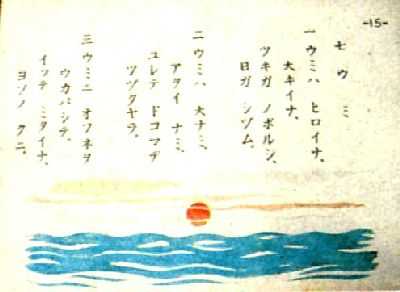 -15-
七 ウミ
一 ウミハ ヒロイナ、
大キイナ、
ツキガ ノボルシ、
日ガ シヅム。
二 ウミハ 大ナミ、
アヲイ ナミ、
ユレテ ドコマデ
ツヅクヤラ。
三 ウミニ オフネヲ
ウカバシテ、
イツテ ミタイナ、
ヨソノ クニ。